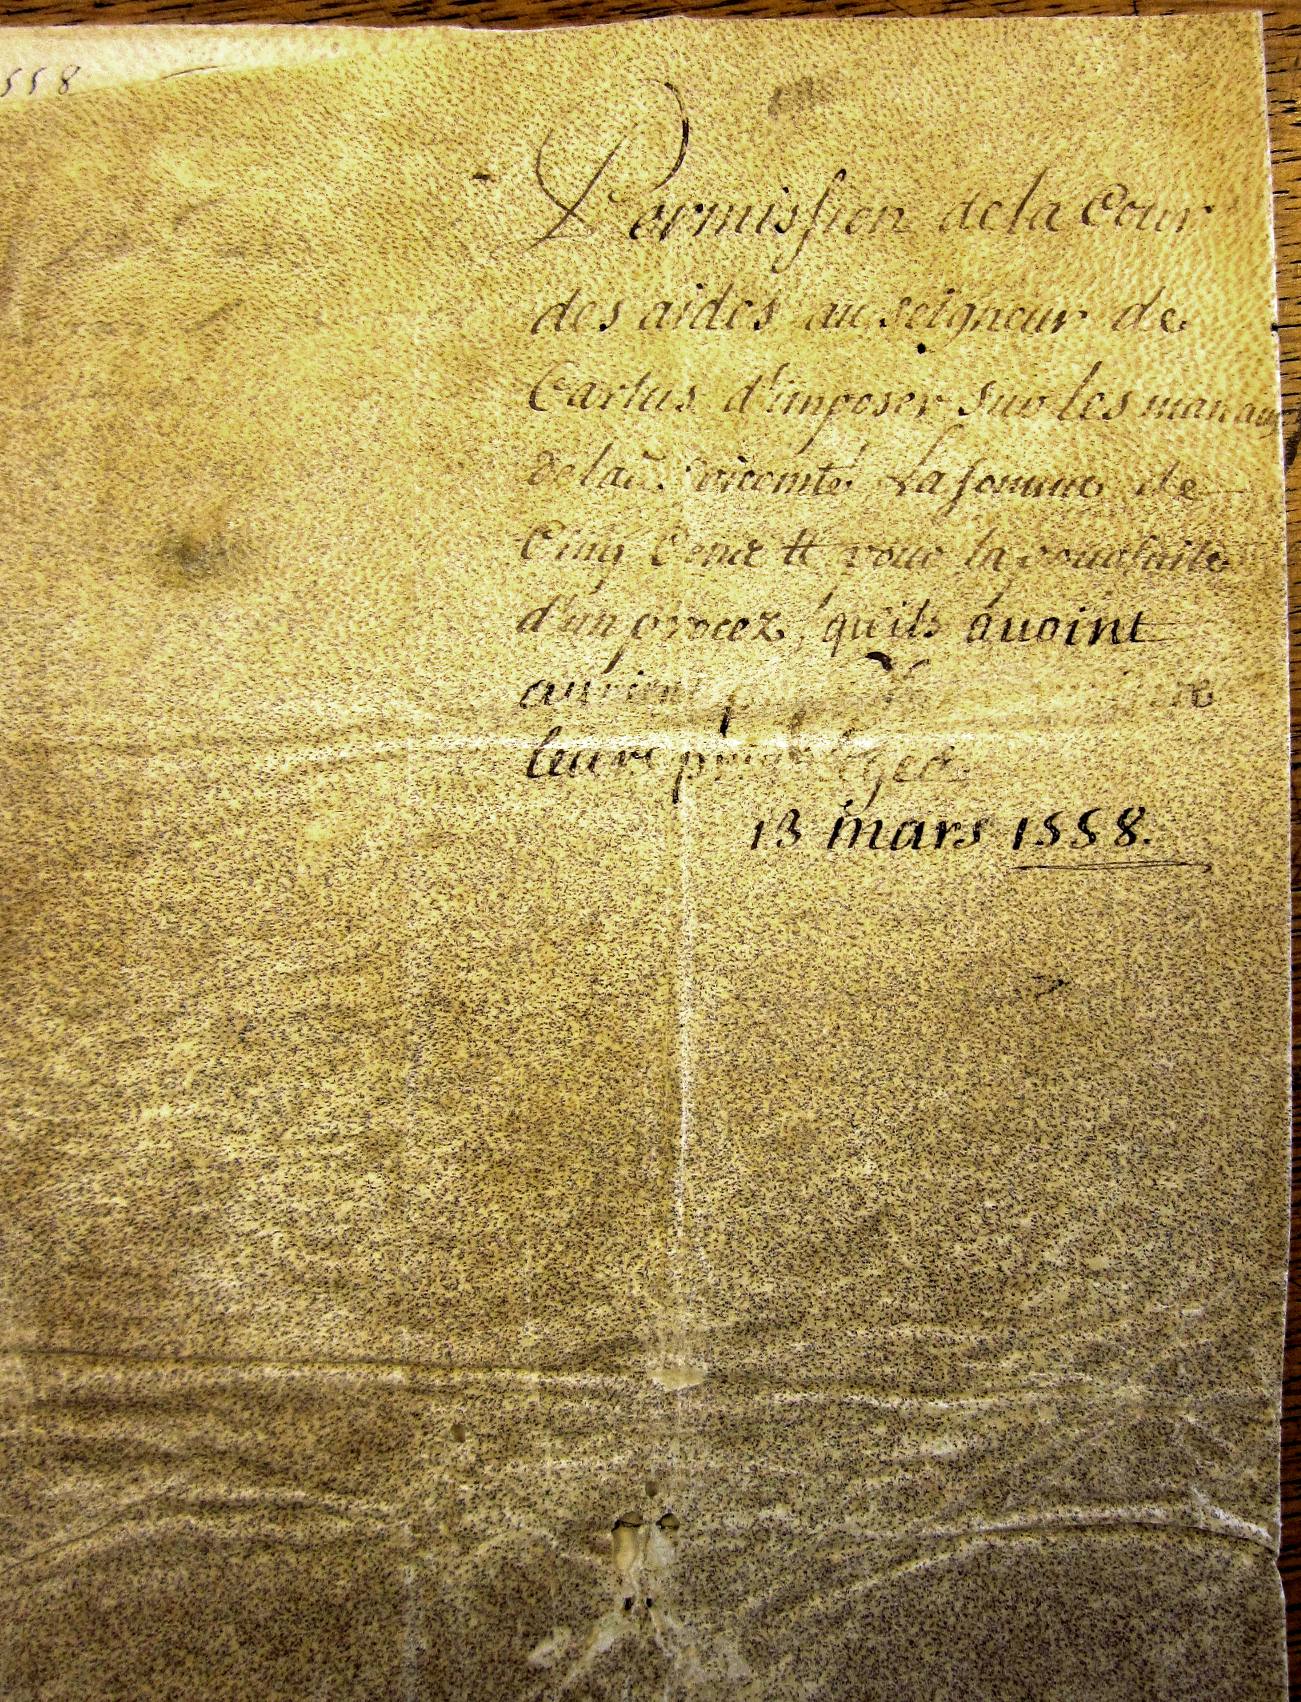 558
Permission dela Cour
des aides au seigneur de
Cartus d'imposer sur les manans
dela d. vicomté La somme de
Cinq Cent ₶ pour la poursuite
d'un procez, qu'ils avoint
au
leurs privileges
13 mars 1558.